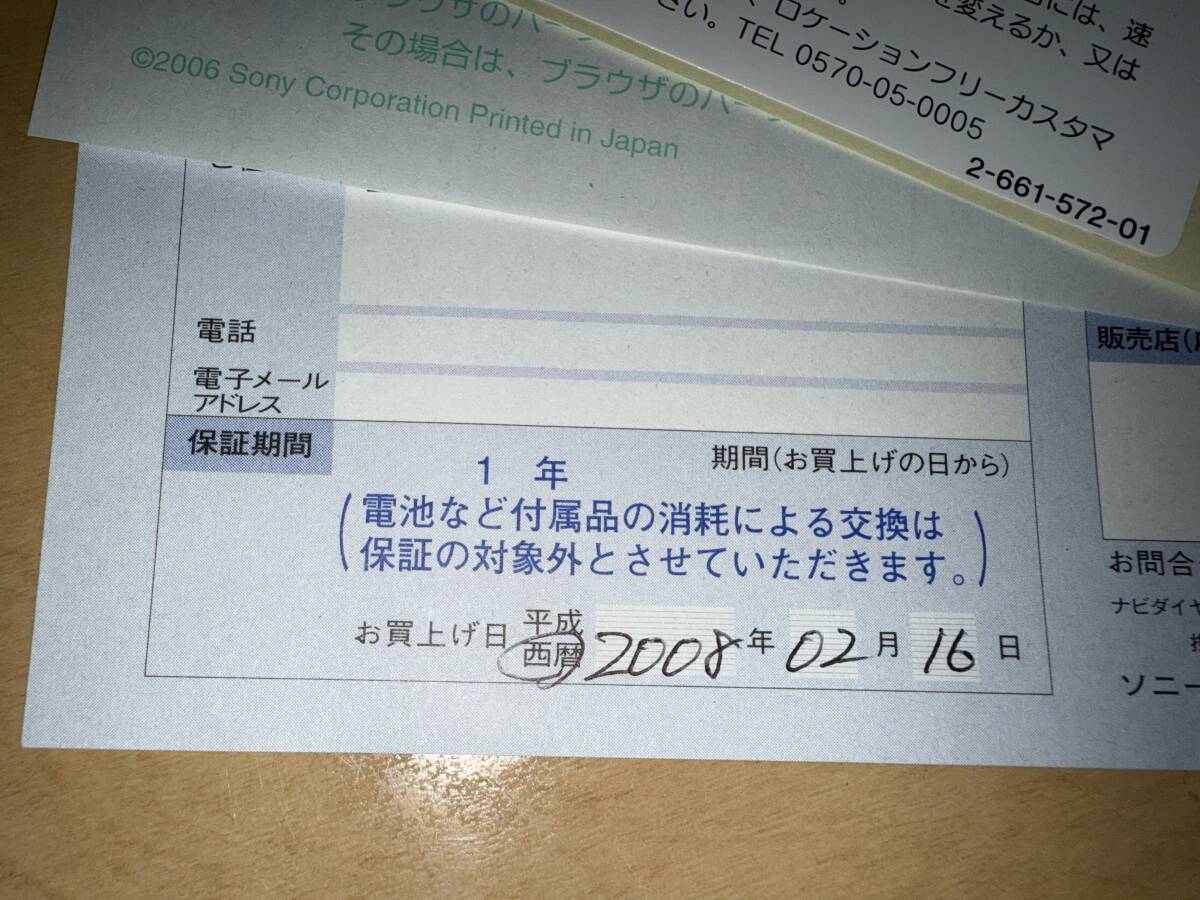 には、速
を変えるか、又は
ロケーションフリーカスタマ
さい。TEL 0570-05-0005
2-661-572-01
ブラウザのバー
その場合は、ブラウザのバー
©2006 Sony Corporation Printed in Japan
電話
電子メール
アドレス
保証期間
1 年
期間(お買上げの日から)
(電池など付属品の消耗による交換は
保証の対象外とさせていただきます。)
お買上げ日 平成
西暦 2008 年 02 月 16 日
販売店(
お問合
ナビダイヤ
ソニー